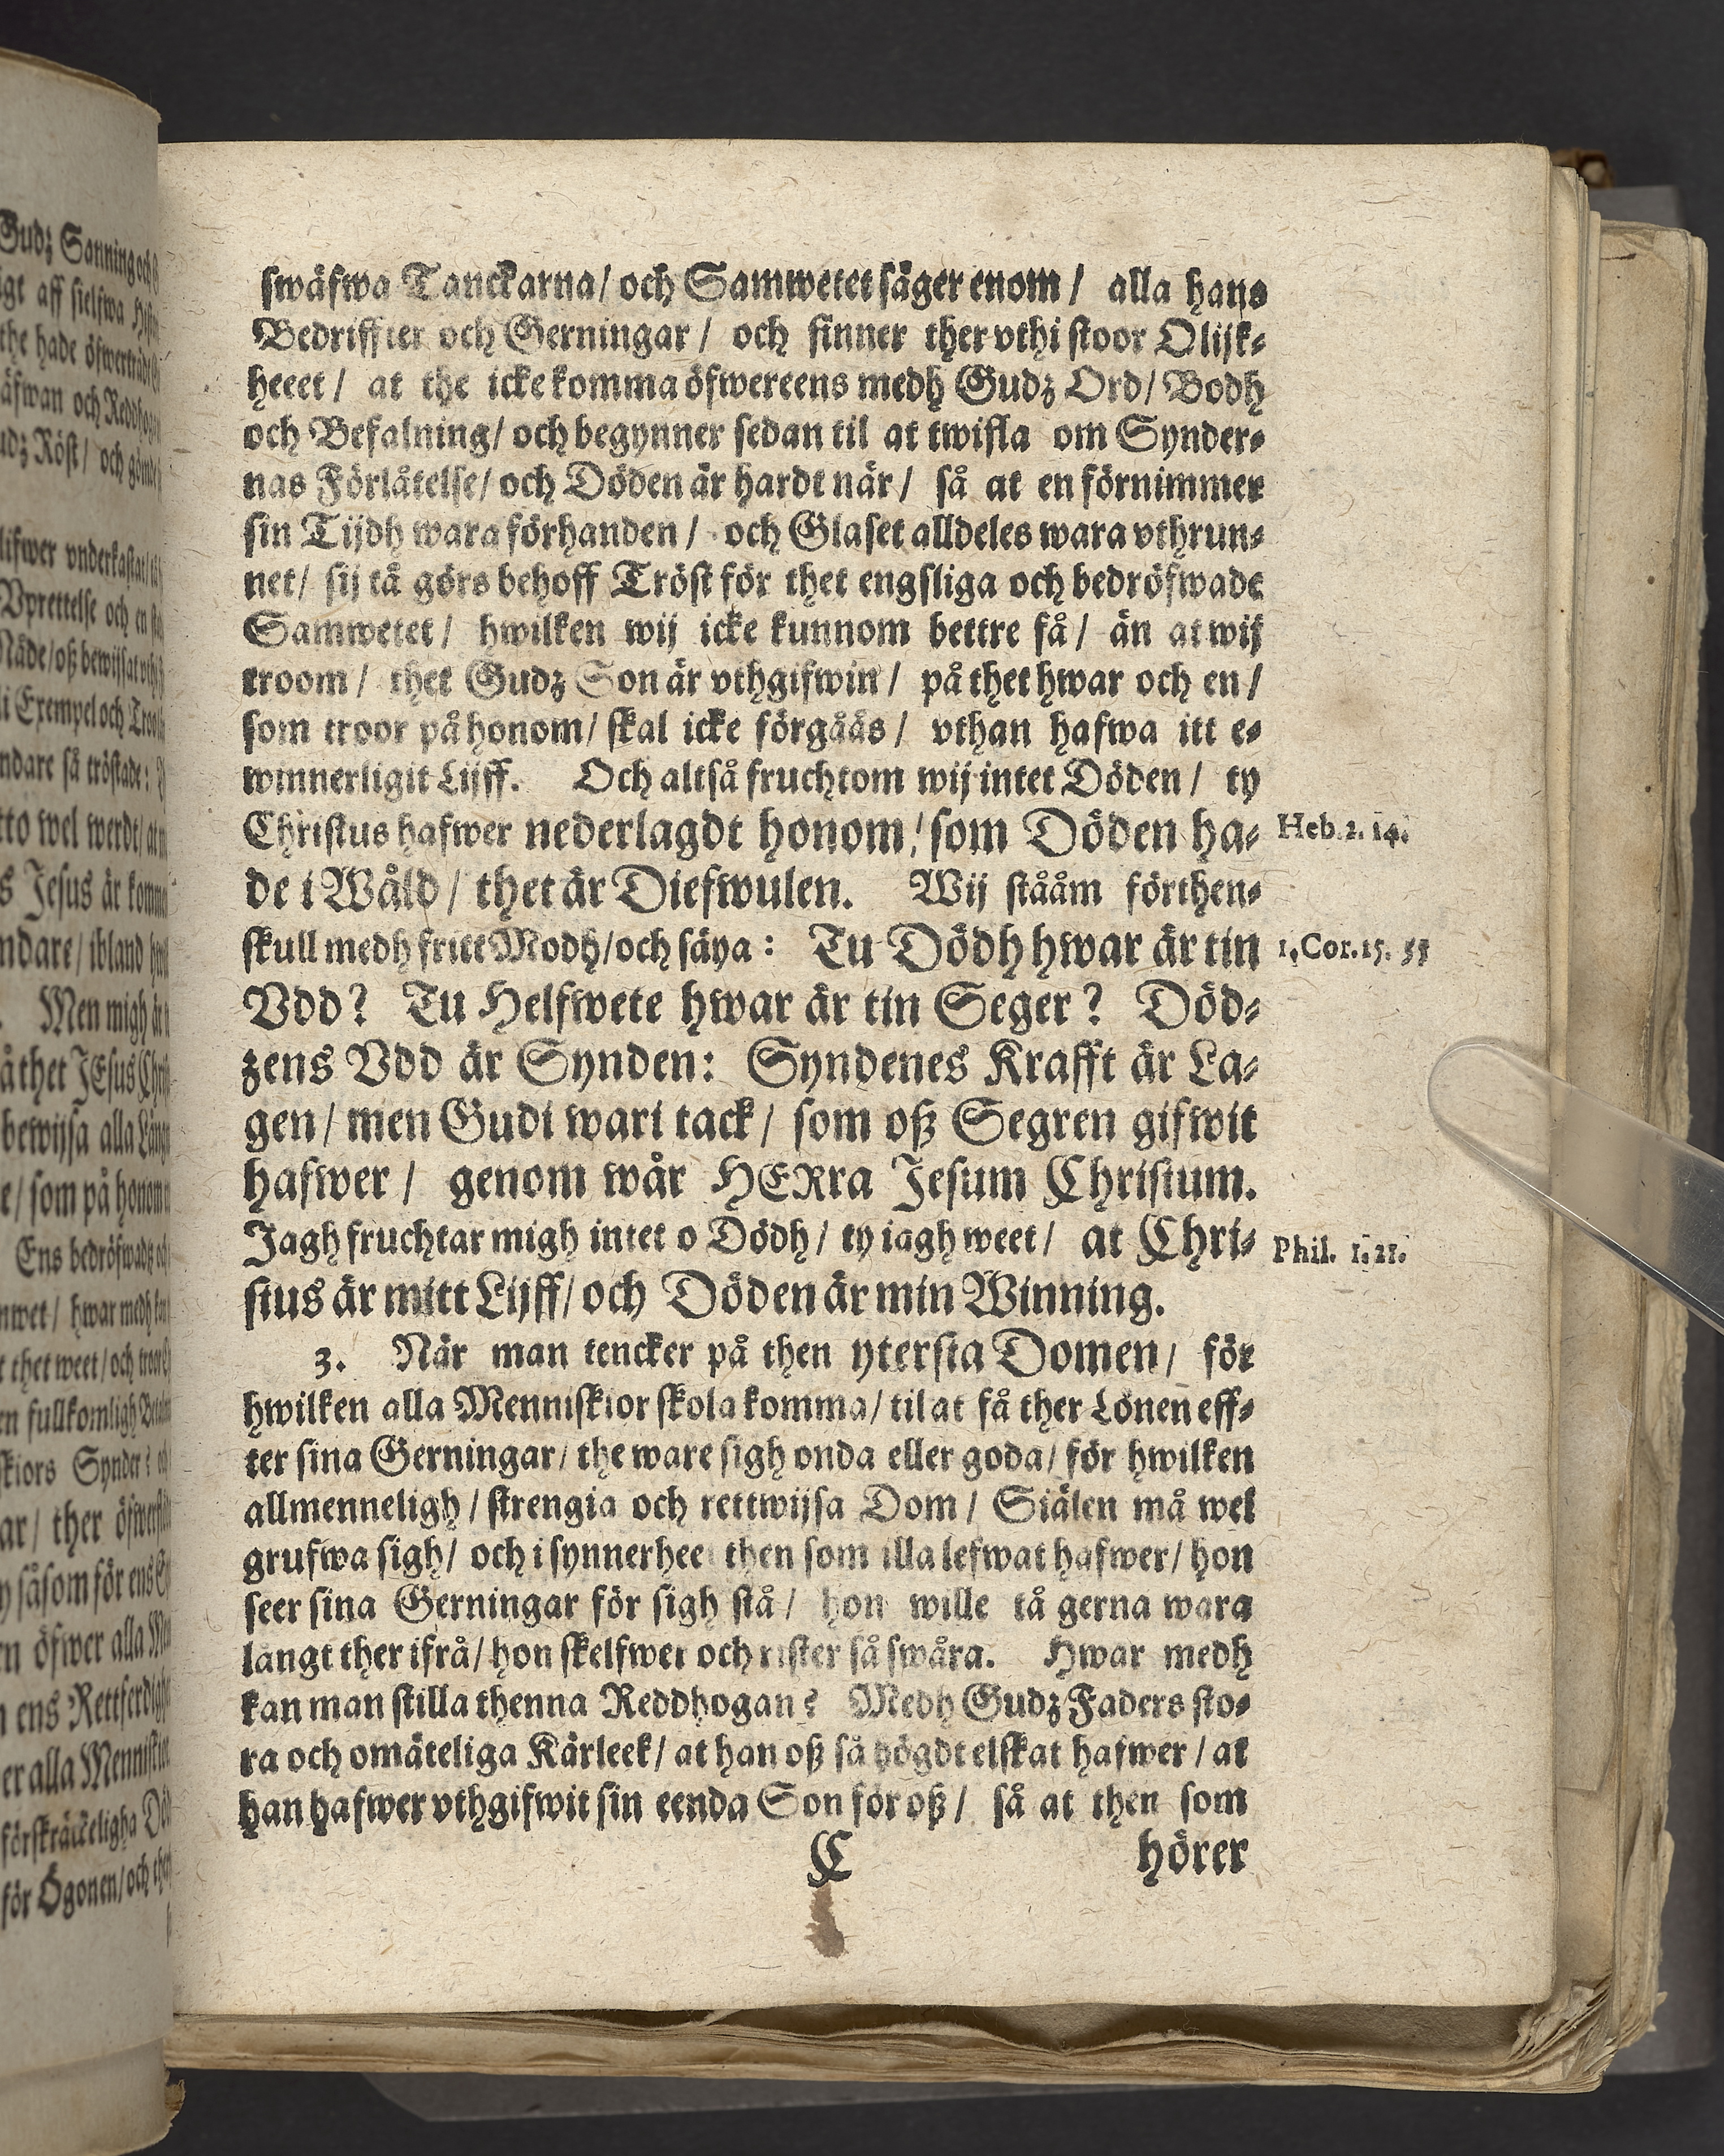 swäfwa Tanckarna/ och Samwetet säger enom/ alla hans
Bedriffter och Gerningar/ och finner ther vthi stoor Olijk-
heeet/ at the icke komma öfwereens medh Gudz Ord/ Bodh
och Befalning/ och begynner sedan til at twifla om Synder-
nas Förlåtelse/ och Döden är hardt när/ så at en förnimmer
sin Tijdh wara förhanden/ och Glaset alldeles wara vthrun-
net/ sij tå görs behoff Tröst för thet engsliga och bedröfwade
Samwetet/ hwilken wij icke kunnom bettre få/ än at wij
troom/ thet Gudz Son är vthgifwin/ på thet hwar och en/
som troor på honom/ skal icke förgåås/ vthan hafwa itt e-
winnerligit Lijff. Och altså fruchtom wij intet Döden/ ty
Christus hafwer nederlagdt honom/ som Döden ha-
de i Wåld/ thet är Diefwulen. Wij stååm förthen-
skull medh fritt Modh/ och säya: Tu Dödh hwar är tin
Vdd? Tu Helfwete hwar är tin Seger? Död-
zens Vdd är Synden: Syndenes Krafft är La-
gen/ men Gudi wari tack/ som oß Segren gifwit
hafwer/ genom wår HERra Jesum Christum.
Jagh fruchtar migh intet o Dödh/ ty iagh weet/ at Chri-
stus är mitt Lijff/ och Döden är min Winning.
3. När man tencker på then ytersta Domen/ för
hwilken alla Menniskior skola komma/ til at få ther Lönen eff-
ter sina Gerningar/ the ware sigh onda eller goda/ för hwilken
allmenneligh/ strengia och rettwijsa Dom/ Siälen må wel
grufwa sigh/ och i synnerheet then som illa lefwat hafwer/ hon
seer sina Gerningar för sigh stå/ hon wille tå gerna wara
långt ther ifrå/ hon skelfwer och rister så swåra. Hwar medh
kan man stilla thenna Reddhogan? Medh Gudz Faders sto-
ra och omäteliga Kärleek/ at han oß så högdt elskat hafwer/ at
han hafwer vthgifwit sin eenda Son för oß/ så at then som
C hörer
Heb. 2. 14.
1. Cor. 15. 55
Phil. 1. 21.